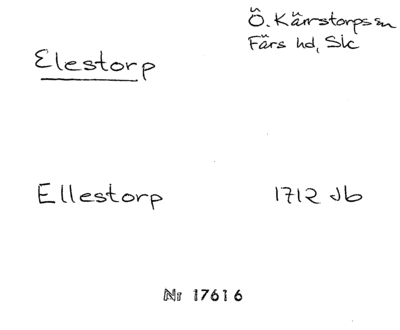 Ö. Kärrstorps sn
Färs hd, Sk
Elestorp
Ellestorp 1712 Jb
Nr 17616